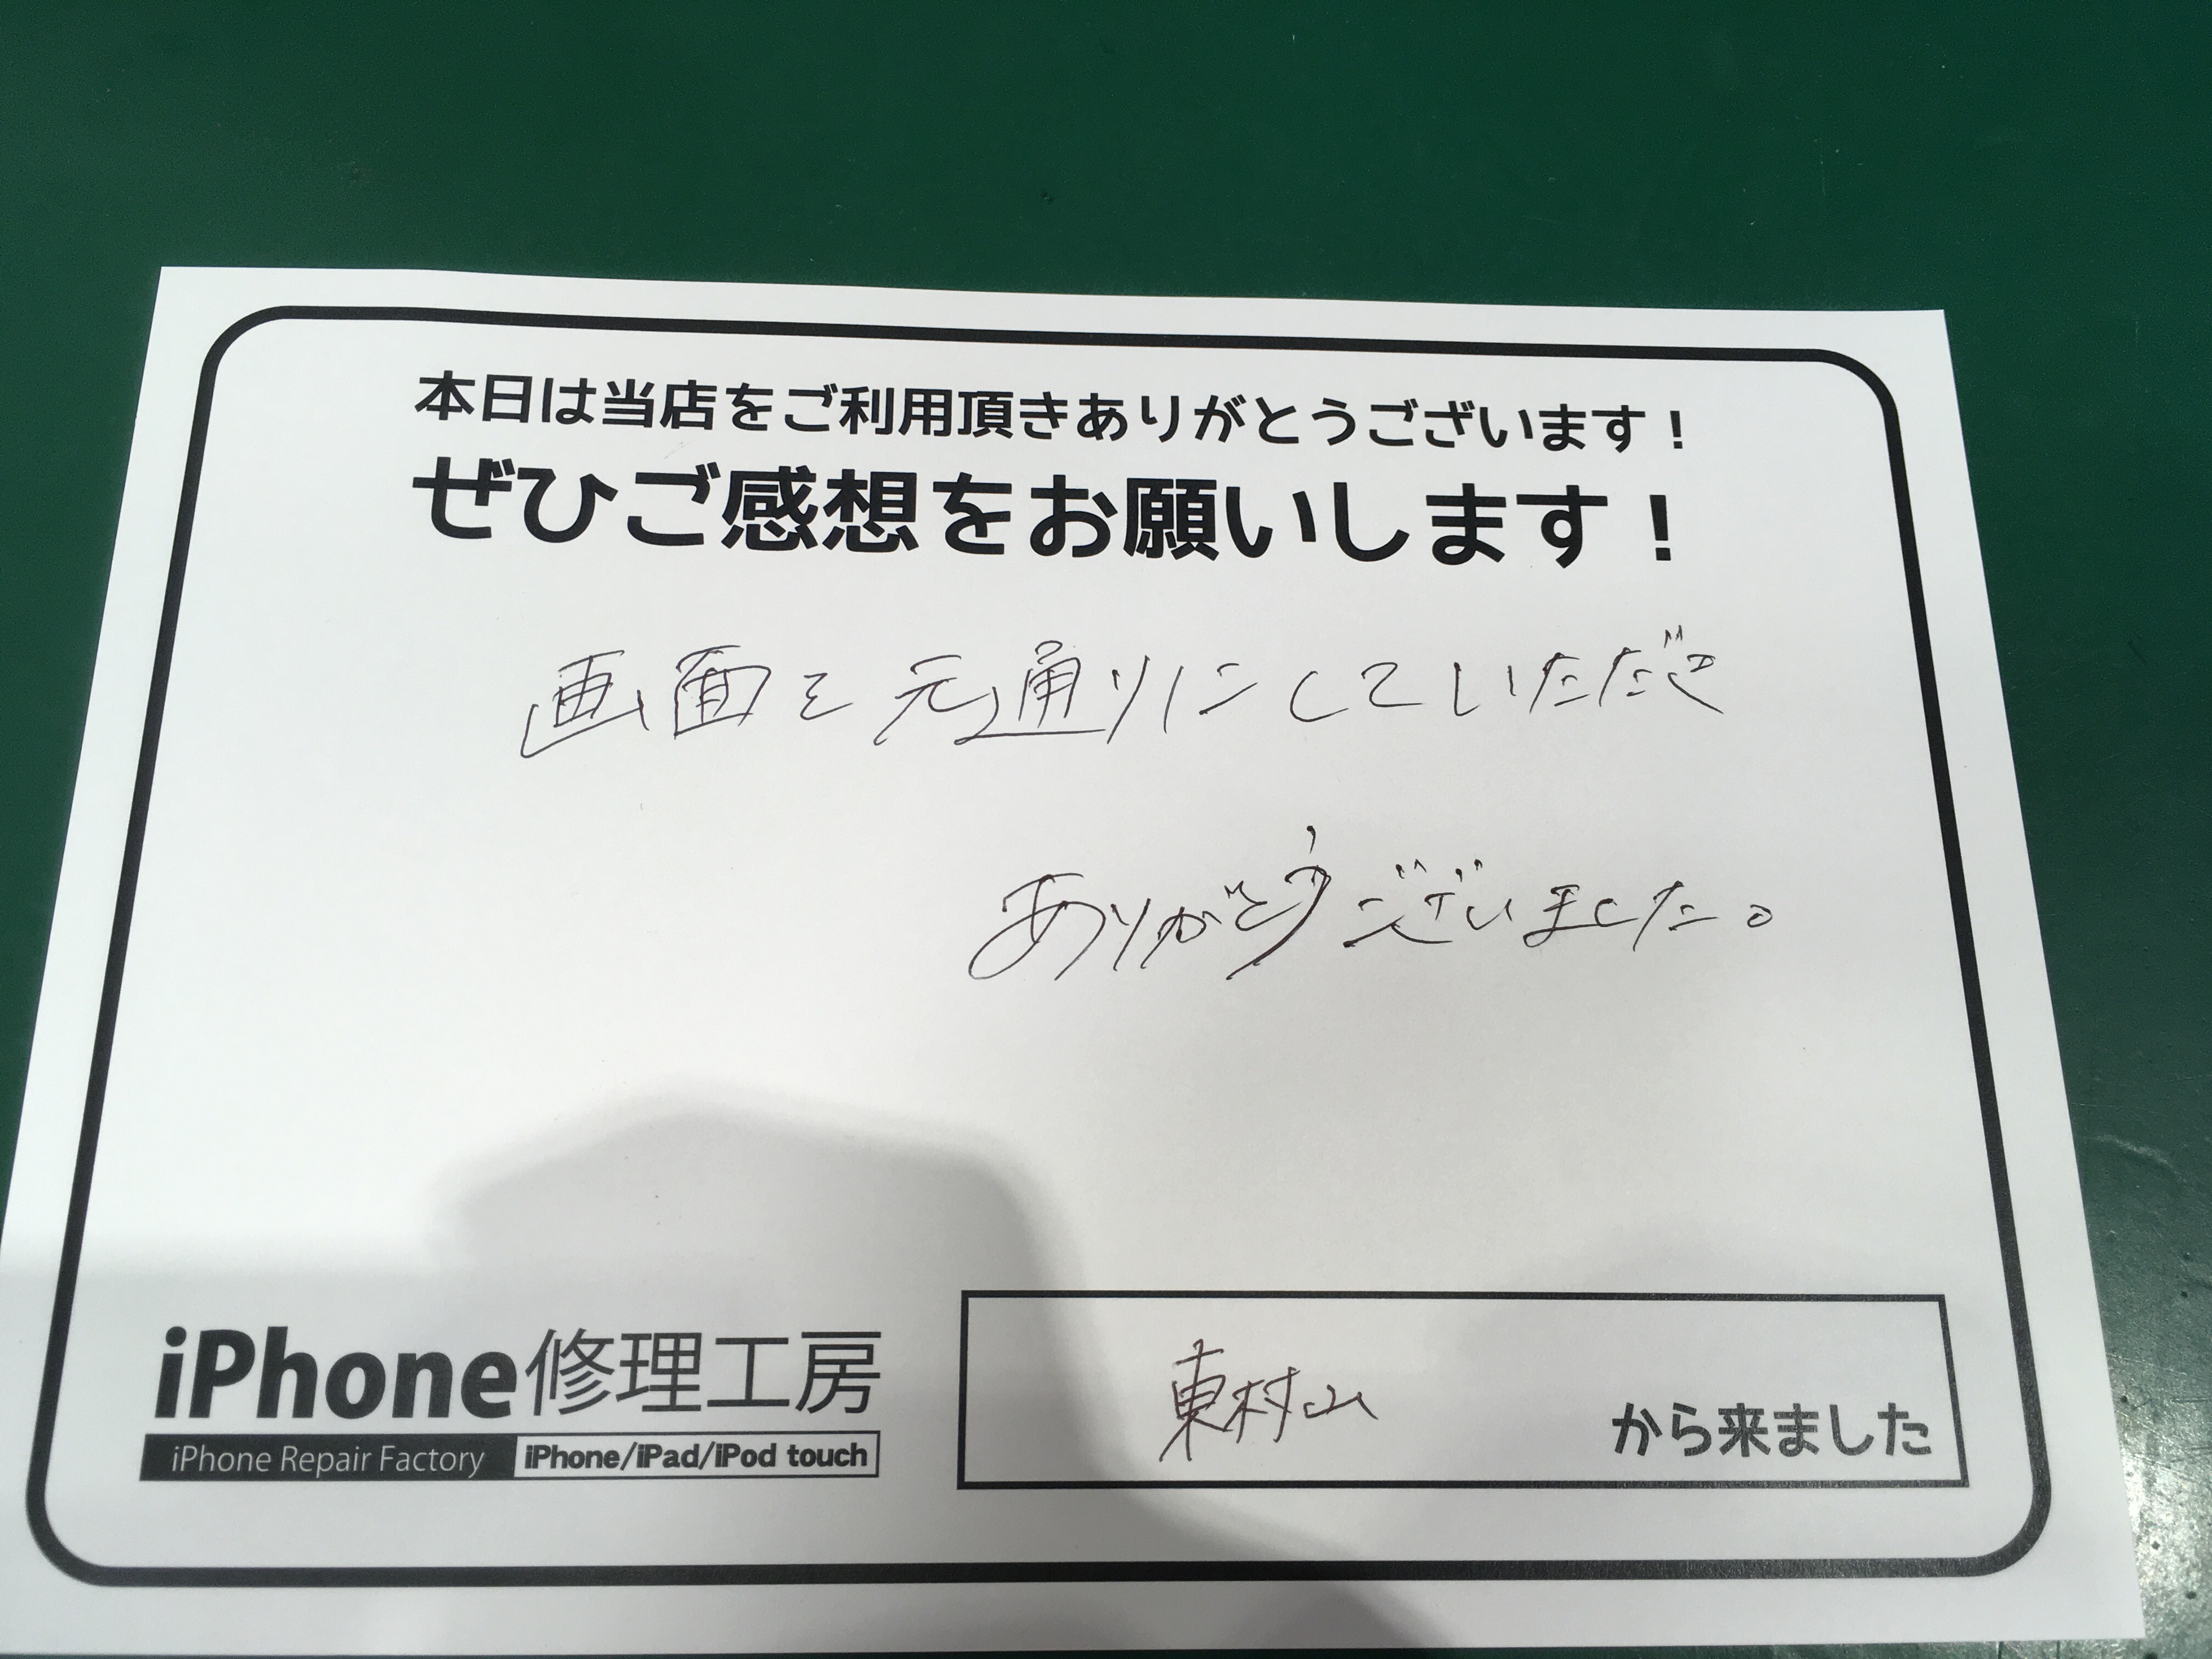 本日は当店をご利用頂きありがとうございます！
ぜひご感想をお願いします！
画面を元通りにしていただき
ありがとうございました。
東村山 から来ました
iPhone修理工房
iPhone Repair Factory iPhone/iPad/iPod touch